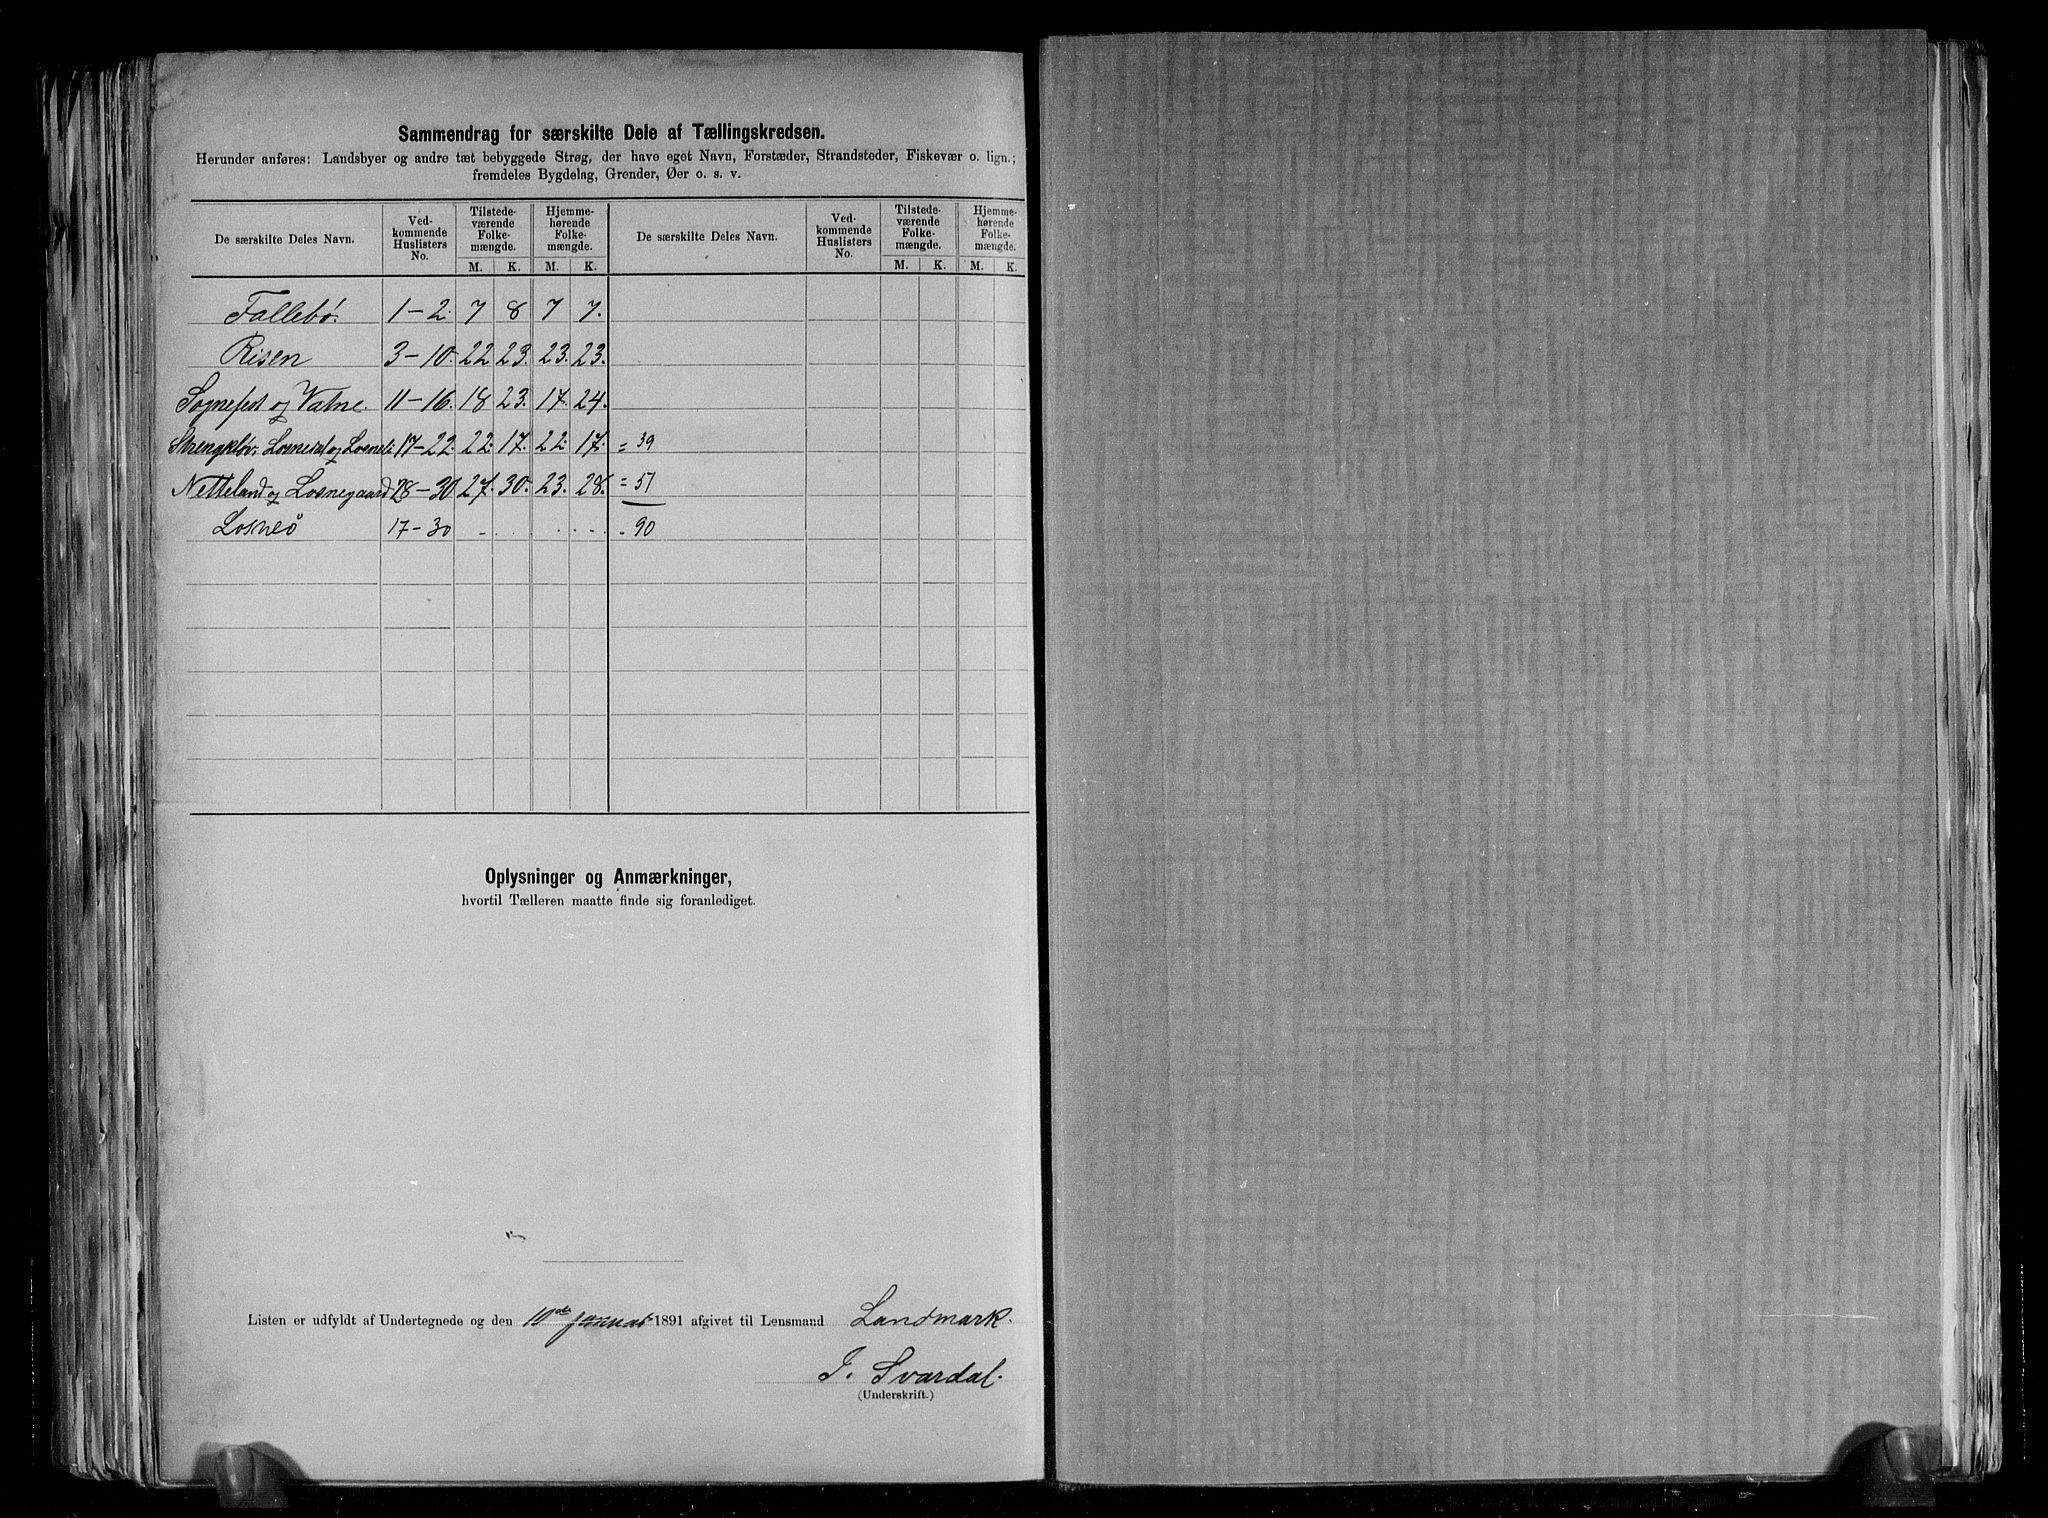 Sammendrag for særskilte Dele af Tællingskredsen.
Herunder anføres: Landsbyer og andre tæt bebyggede Strøg, der have eget Navn, Forstæder, Strandsteder, Fiskevær o. lign.;
fremdeles Bygdelag, Grender, Øer o. s. v.
De særskilte Deles Navn. Ved-kommende Huslisters No. Tilstede-værende Folke-mængde. Hjemme-hørende Folke-mængde. De særskilte Deles Navn. Ved-kommende Huslisters No. Tilstede-værende Folke-mængde. Hjemme-hørende Folke-mængde.
M. K. M. K. M. K. M. K.
Fallebø. 1-2. 7 8 7 7.
Risen 3-10. 22 23. 23. 23.
Sognefest og Vatne. 11-16. 18 23. 17. 24.
Losnedal og Losneli 17-22. 22. 17. 22. 17. = 39
Netteland og Losnegaard 28-30 27. 30. 23. 28. = 51
Losneö 17-30 - 90
Oplysninger og Anmærkninger,
hvortil Tælleren maatte finde sig foranlediget.
Listen er udfyldt af Undertegnede og den 10de Januar 1891 afgivet til Lensmand Landmark.
J. Svardal.
(Underskrift.)